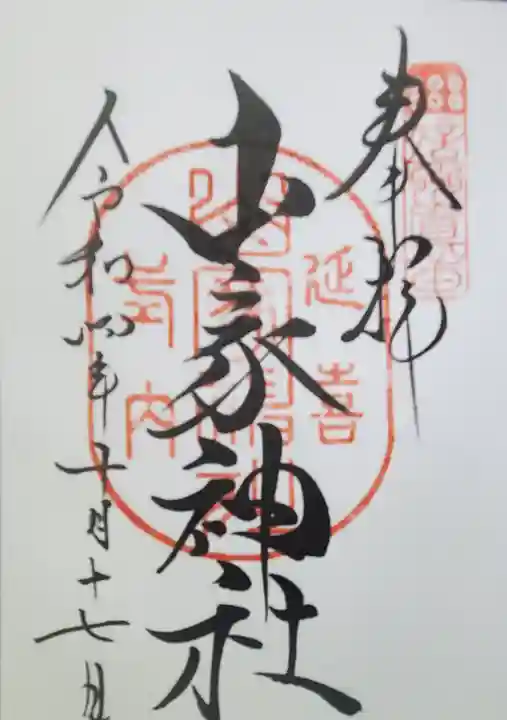 奉拝
山家神社
延喜
式内
令和四年十月十七日